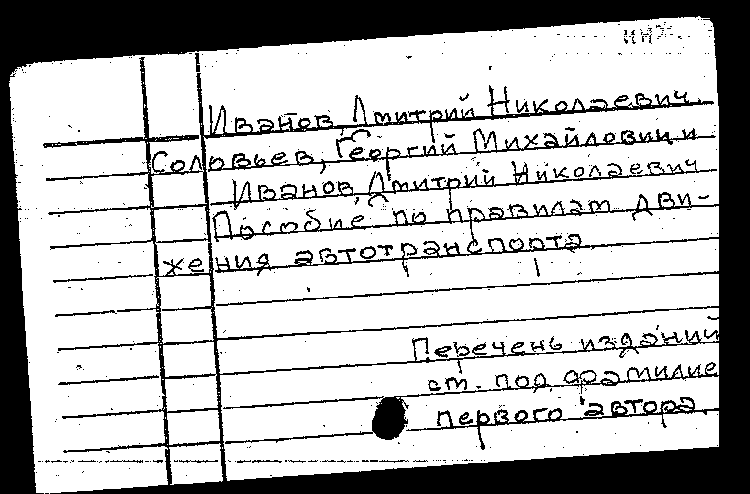 Иванов, Дмитрий Николаевич.
Соловьев, Георгий Михайлович и
Иванов, Дмитрий Николаевич
Пособие по правилам дви-
жения автотранспорта.
Перечень изданий
см. под фамилие
первого автора.